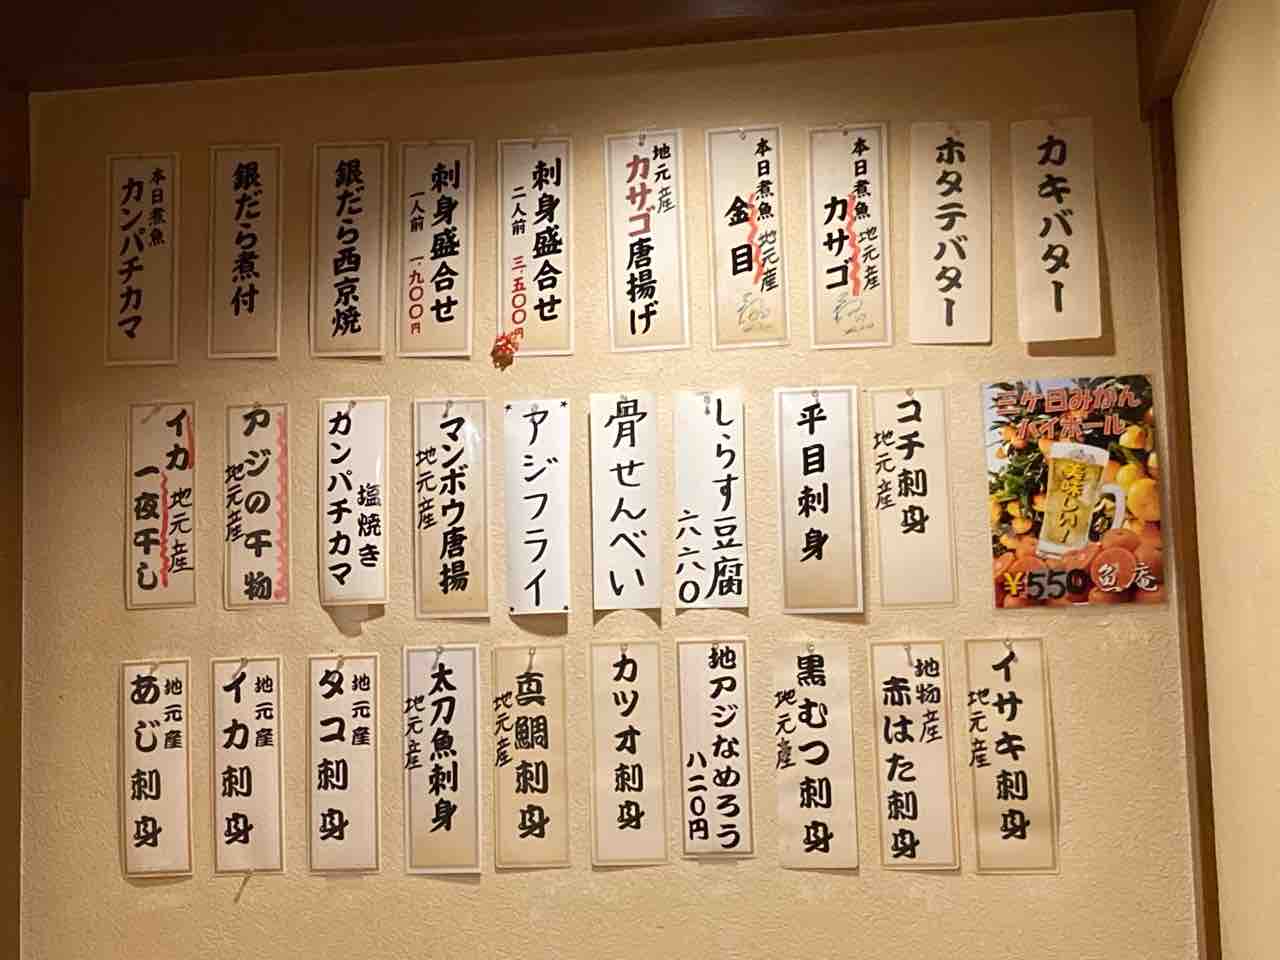 カキバター
ホタテバター
本日煮魚 地元産
カサゴ
本日煮魚 地元産
金目
地元産
カサゴ唐揚げ
刺身盛合せ
二人前 三.五〇〇円
刺身盛合せ
一人前 一.九〇〇円
銀だら西京焼
銀だら煮付
本日煮魚
カンパチカマ
三ヶ日みかん
ハイボール
美味しい!
¥550
魚庵
コチ刺身
地元産
平目刺身
しらす豆腐
六六〇
骨せんべい
アジフライ
マンボウ唐揚
地元産
塩焼き
カンパチカマ
アジの干物
地元産
イカ 地元産
一夜干し
イサキ刺身
地元産
地物産
赤はた刺身
黒むつ刺身
地元産
地アジなめろう
八二〇円
カツオ刺身
真鯛刺身
地元産
太刀魚刺身
地元産
地元産
タコ刺身
地元産
イカ刺身
地元産
あじ刺身